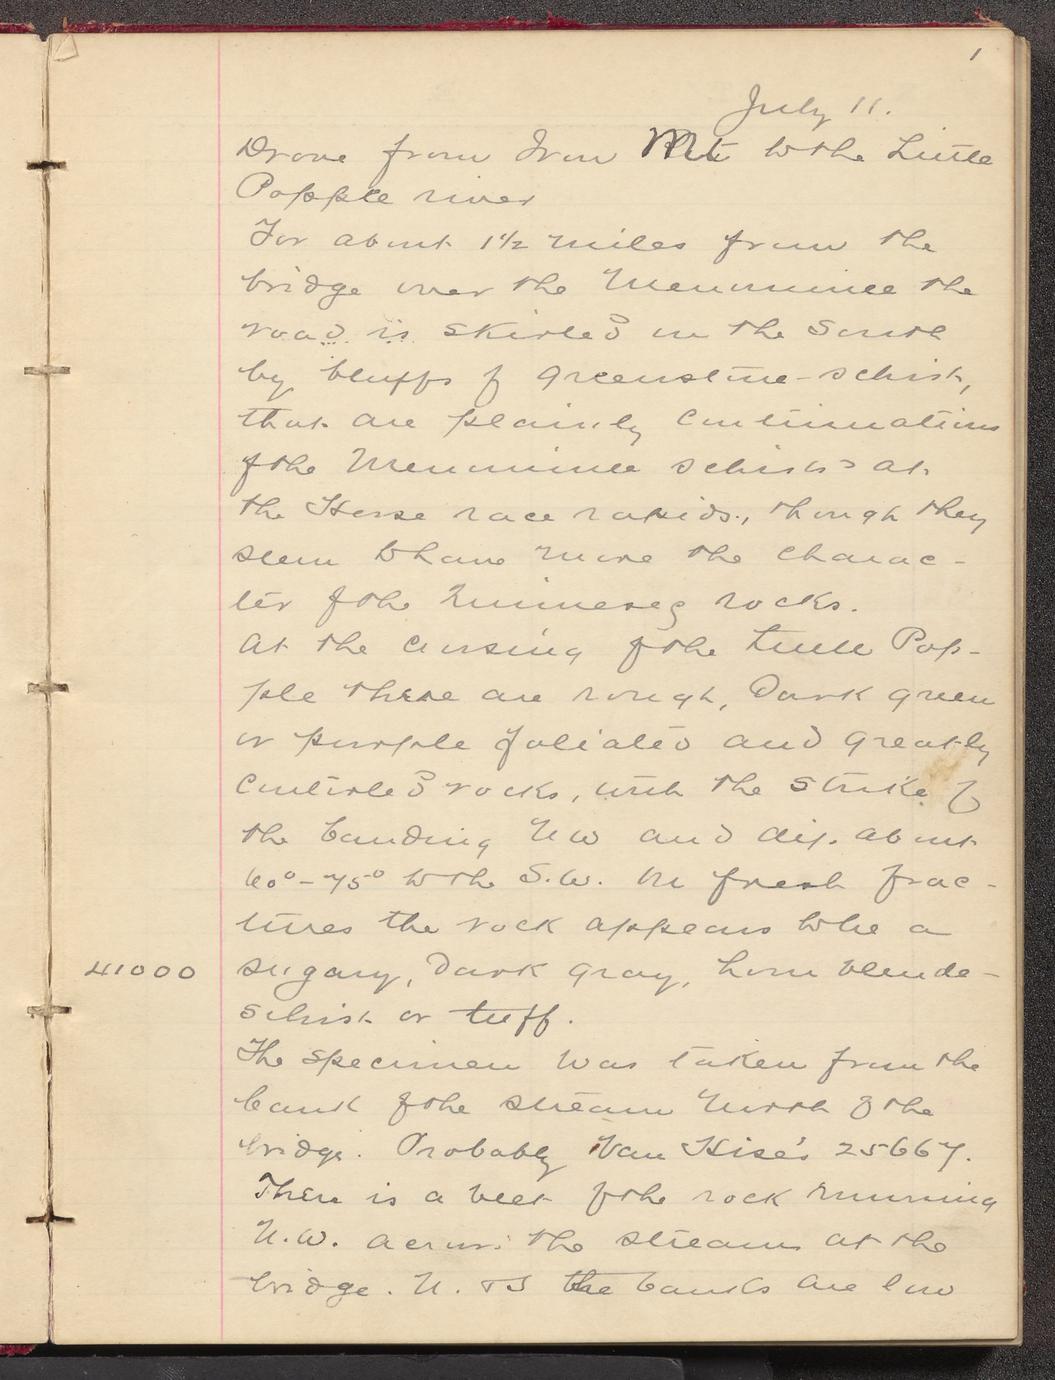 1
July 11.
Drove from Iron Mt to the Little
Popple river
For about 1½ miles from the
bridge over the Menominee the
road is skirted on the South
by bluffs of greenstone-schist,
that are plainly continuations
of the Menominee schists at
the Horse race rapids, though they
seem to have more the charac-
ter of the Quinnesec rocks.
At the crossing of the Little Pop-
ple there are rough, dark green
or purple foliated and greatly
contorted rocks, with the strike of
the banding NW and dip about
60°-75° to the S.W. On fresh frac-
tures the rock appears to be a
41000 sugary, dark gray, hornblende-
schist or tuff.
The specimen was taken from the
bank of the stream North of the
bridge. Probably Van Hise's 25667.
There is a belt of the rock running
N.W. across the stream at the
bridge. N. & S the banks are low